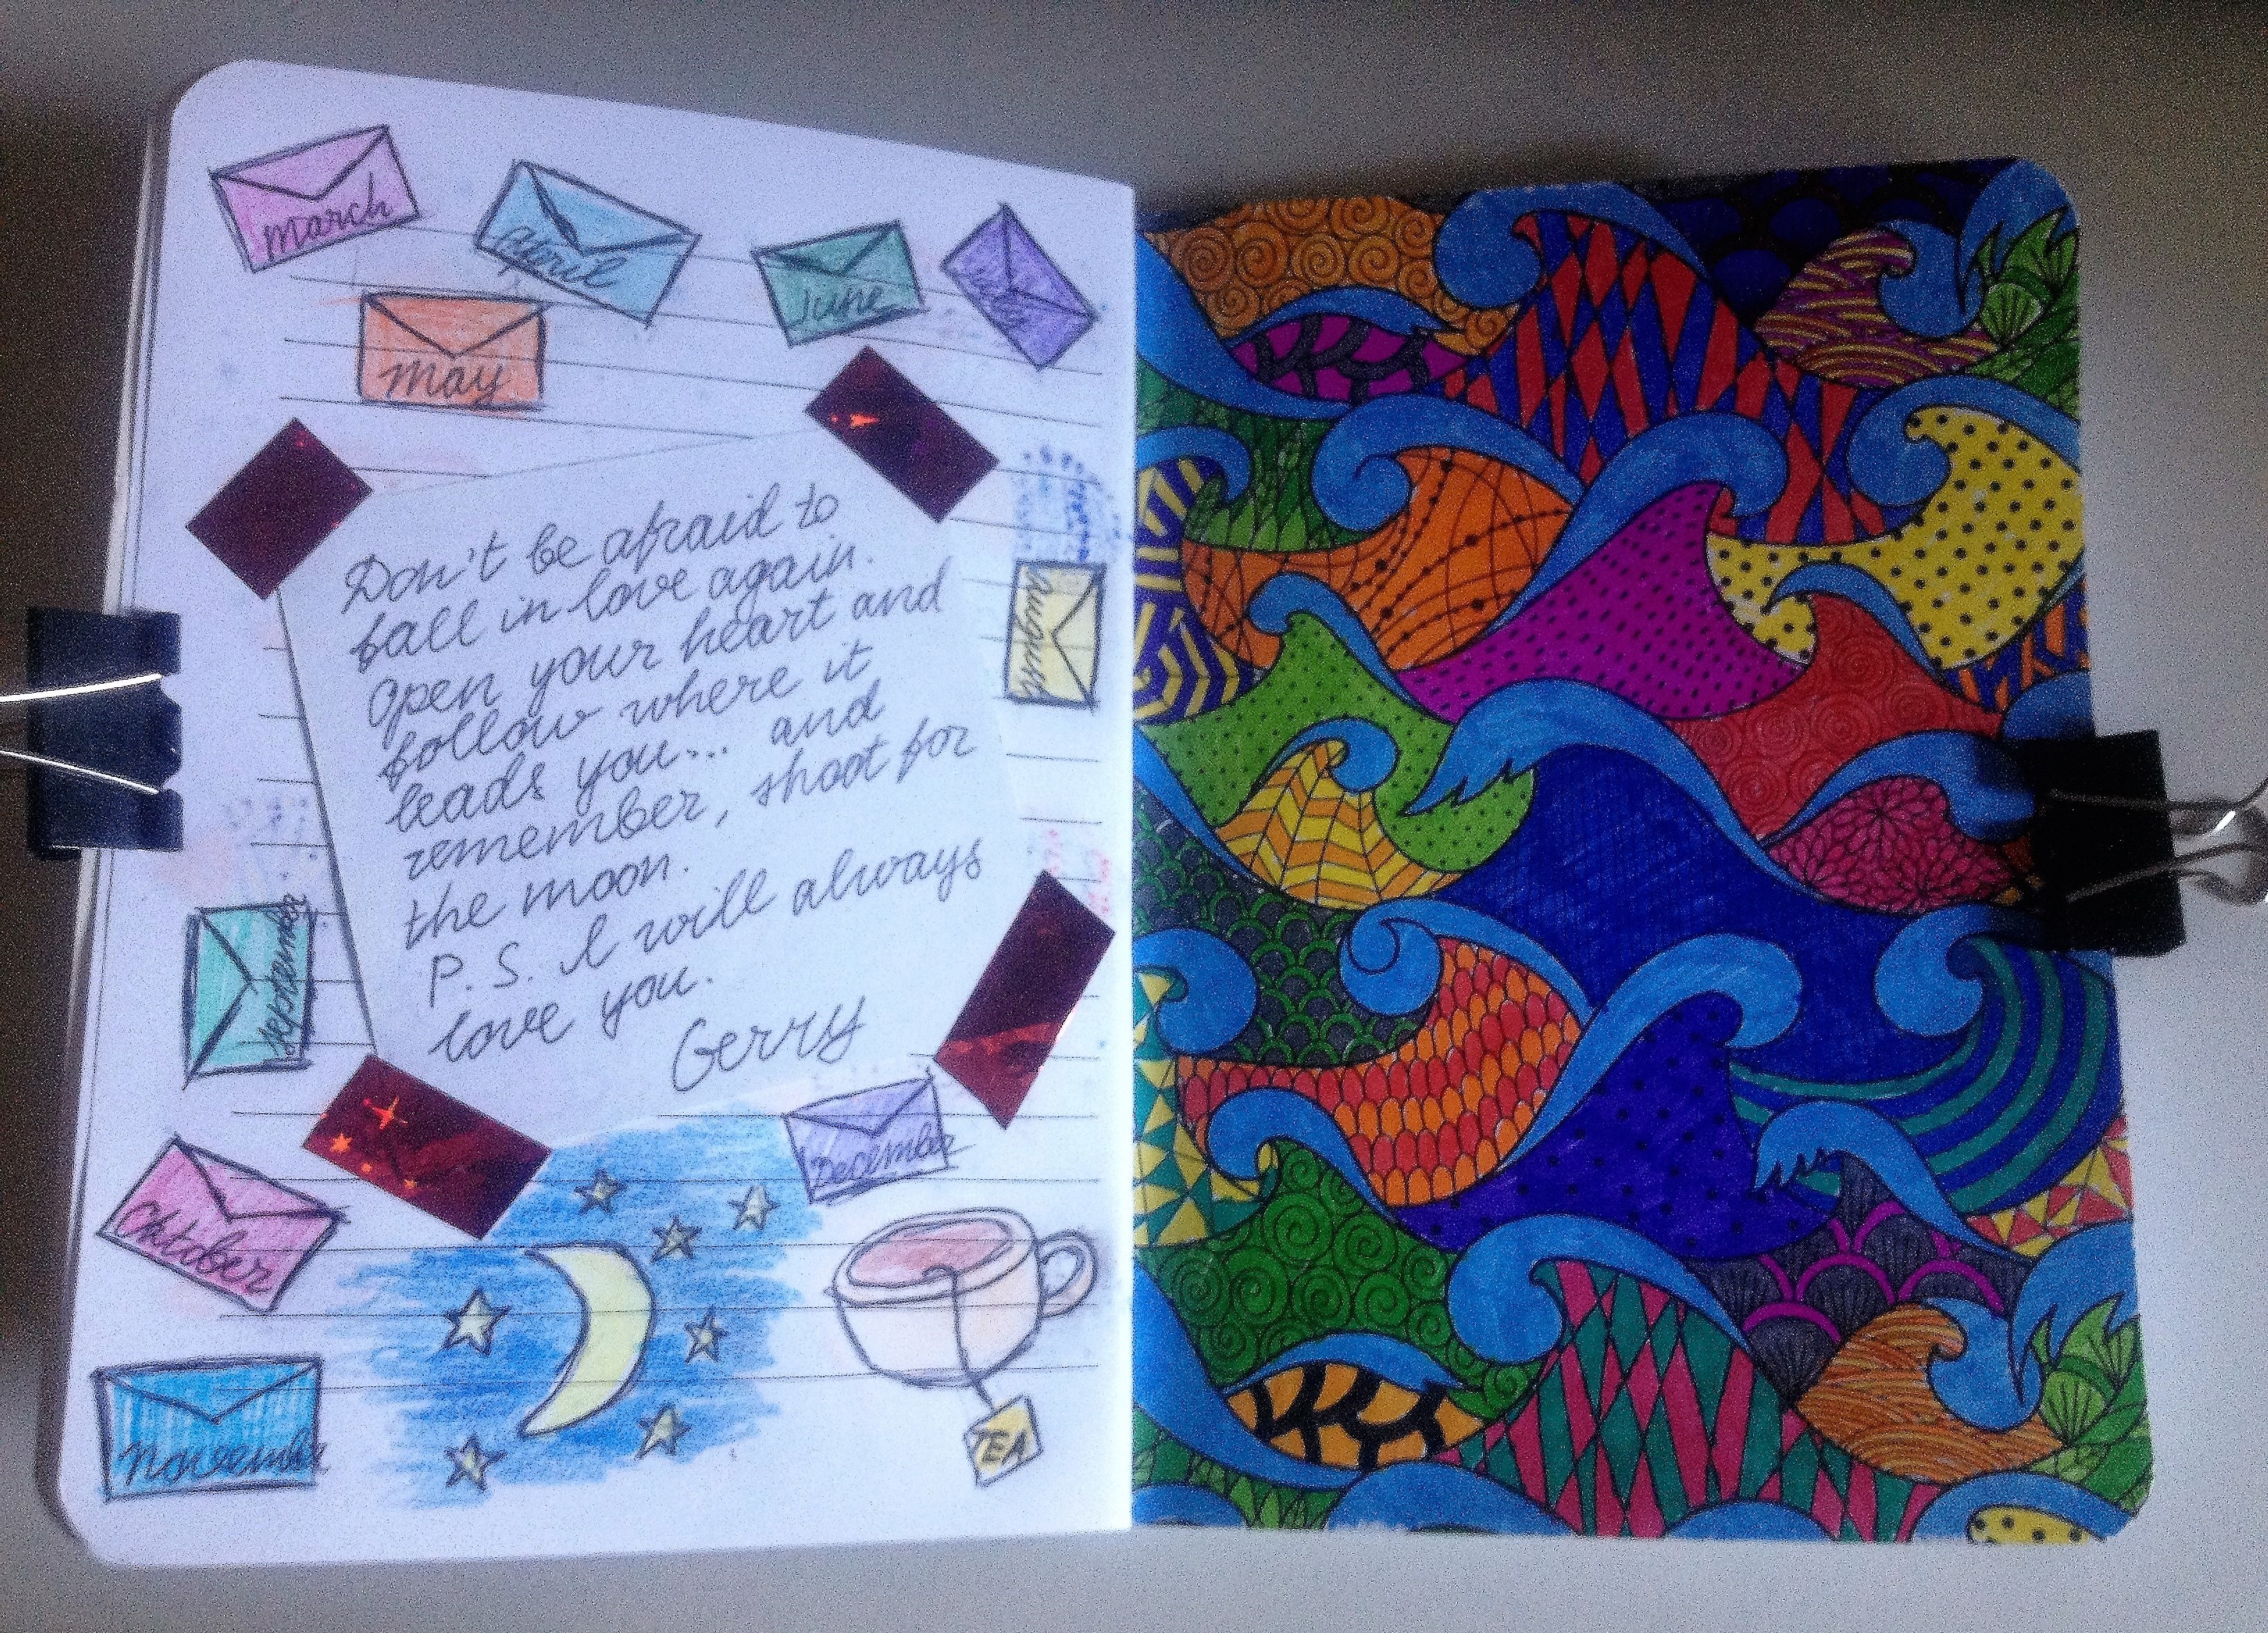 march
april
June
july
May
Don't be afraid to
fall in love again.
Open your heart and
follow where it
leads you... and
remember, shoot for
the moon.
P. S. I will always
love you.
Gerry
august
september
December
Oktober
november
TEA